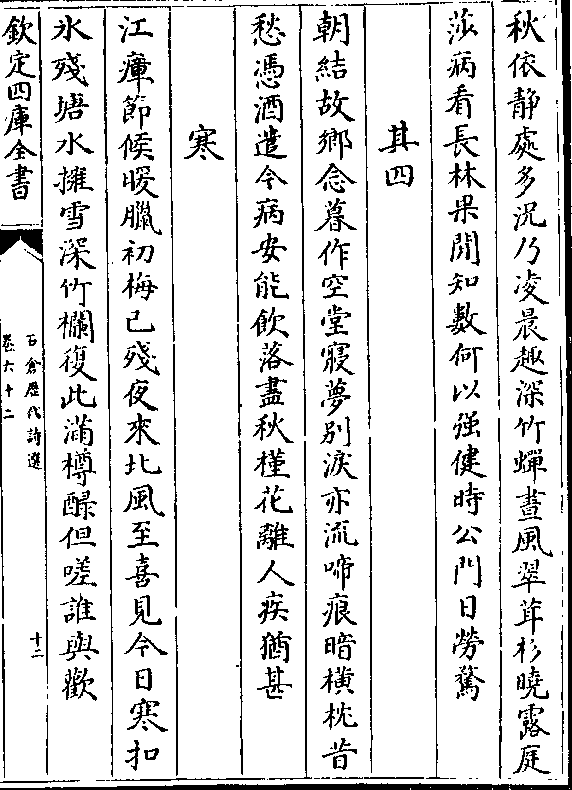 秋依静處多況乃凌晨趣深竹蟬晝風翠茸杉曉露庭
莎病看長林果閒知數何以强健時公門日勞騖
其四
朝結故鄉念暮作空堂寢夢别淚亦流啼痕暗横枕昔
愁憑酒遣今病安能飲落盡秋槿花離人疾猶甚
寒
江瘴節候暖臘初梅已殘夜來北風至喜見今日寒扣
氷殘塘水擁雪深竹欄復此滿樽醁但嗟誰與歡
欽定四庫全書
石倉歷代詩選
卷六十二
十二